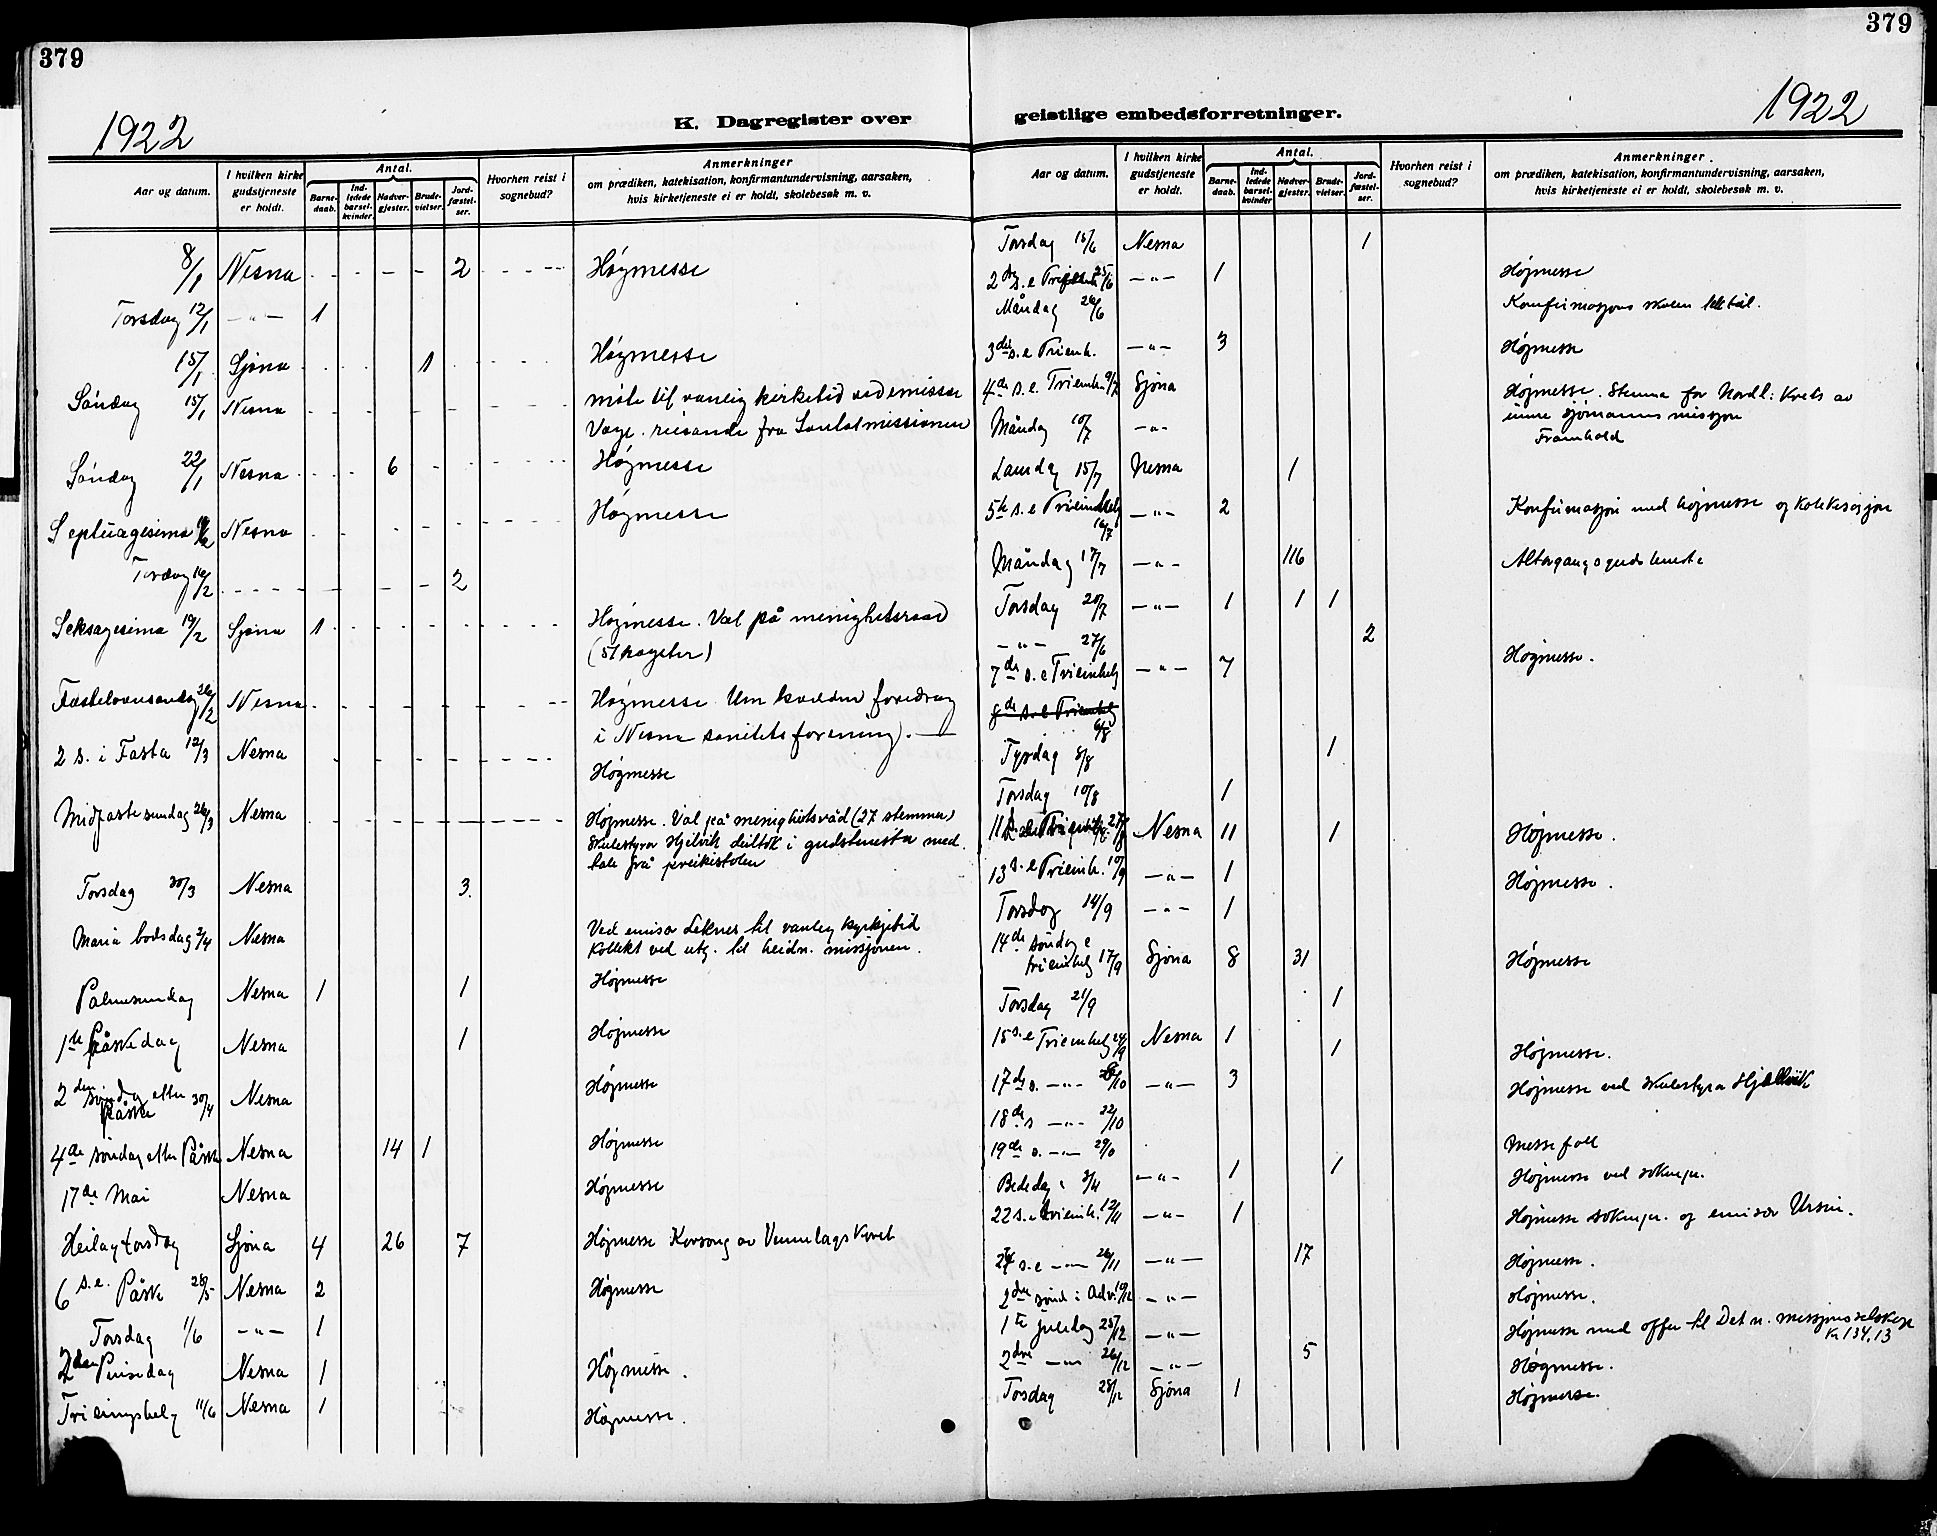 379
1922
K. Dagregister over
Aar og datum.
I hvilken kirke gudstjeneste er holdt.
Antal.
Barne-daab.
Ind-ledede barsel-kvinder
Nadver-gjester.
Brude-vielser.
Jord-fæstel-ser.
Hvorhen reist i sognebud?
Anmerkninger
om prædiken, katekisation, konfirmantundervisning, aarsaken,
hvis kirketjeneste ei er holdt, skolebesøk m. v.
8/1 Nesna 2 Høgmesse
Torsdag 12/1 - " - 1
15/1 Sjona 1 Høgmesse
Søndag 15/1 Nesna møte til vanlig kirketid ved emissær
Vage. reisande fra Santalmissionen
Søndag 22/1 Nesna 6 Høgmesse
Septuagesima Nesna Høgmesse
Torsdag 16/2 2
Seksagesima 19/2 Sjona 1 Høgmesse. Val på menighetsraad
(51 røyster)
Fastelavnsundag 26/2 Nesna Høgmesse Um kvelden foredrag
i Nesna sanitetsforening.
2 s. i Fasta 12/3 Nesna Høgmesse
Midfastesundag 26/3 Nesna Høgmesse. Val på menighetsråd (27 stemma)
Skulestyrar Hjelvik deiltok i gudstenesta med
tale frå preikestolen
Torsdag 30/3 Nesna 3.
Maria bodsdag 2/4 Nesna Ved emisær Leknes til vanleg kyrkjetid
Kollekt ved utg. til heidn. missjonen.
Palmesundag Nesna 1 1 Høgmesse
1ste Påskedag Nesna 1 Høgmesse
2den søndag etter Påske 30/4 Nesna Høgmesse
4de søndag etter Påske Nesna 14 1 Høgmesse
17de Mai Nesna Høgmesse
Heilag torsdag Sjona 4 26 7 Høgmesse Korsong av
6 s.e. Påske 28/5 Nesna 2 Høgmesse
Torsdag 1/6 - " - 1
2den Pinsedag Nesna 1 Høgmesse.
Trieiningshelg 11/6 Nesna 1 Høgmesse.
379
1922
geistlige embedsforretninger.
Aar og datum.
I hvilken kirke gudstjeneste er holdt.
Antal.
Barne-daab.
Ind-ledede barsel-kvinder
Nadver-gjester.
Brude-vielser.
Jord-fæstel-ser.
Hvorhen reist i sognebud?
Anmerkninger.
om prædiken, katekisation, konfirmantundervisning, aarsaken,
hvis kirketjeneste ei er holdt, skolebesøk m. v.
Torsdag 15/6 Nesna 1
2den s. e 25/6 - " - 1 Høgmesse
Måndag 26/6 Konfirmasjons skolen
3die s. e Trieinh. - " - 3 Høgmesse
4de s. e. Trieinh. 9/7 Sjona Høgmesse. Stemna for Nordl: Krets av
indre sjømanns misjon
Måndag 10/7 - " - Framhald
Laurdag 15/7 Nesna 1
5te s. e Trieinhelg 16/7 - " - 2 Konfirmasjon med høgmesse og
Måndag 17/7 - " - 116 Altargangsgudsteneste
Torsdag 20/7 - " - 1 1 1
- " - 27/6 2
7de s. e Trieinhelg - " - 7 Høgmesse.
8de s. e Trieinhelg 6/8
Tysdag 8/8 1
Torsdag 10/8 1
11 Nesna 11 1 Høgmesse.
13 s. e Trieinh. 10/9 - " - 1 Høgmesse.
Torsdag 14/9 - " - 1
14de søndag e trieinhelg 17/9 Sjona 8 31 Høgmesse
Torsdag 21/9 1
15 s. e Trieinhelg 24/9 Nesna 1 1 Høgmesse.
17de s. - " - 8/10 - " - 3 Høgmesse ved skulestyra Hjellvik
18de s - " - 22/10
19de s. - " - 29/0 Messefall
Bededag 3/11 - " - 1 1 Høgmesse ved soknepr.
22 s. e trieinh. 12/11 - " - 1 Høgmesse soknepr. og emisær Ursin.
24 s. e - " - 26/11 - " - 17 Høgmesse.
2dre sønd i Adv. 10/12 - " - Høgmesse.
1te juledag 25/12 - " - Høgmesse med offer til Det n. missjonsselskap
Kr 134,13
2dre - " - 26/12 - " - 5 Høgmesse.
Torsdag 28/12 Sjona 1 Høgmesse.